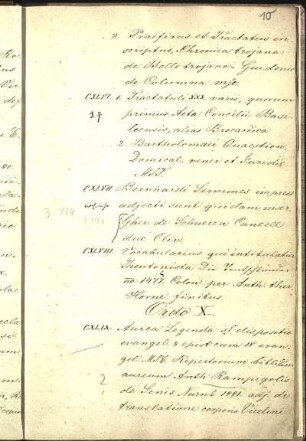 10
2. Praefixus et Tractatus in
scriptus, Chronica trojana
de Bello trojano Guidonis
de Columna mss.
CXLVI. 1. Tractatuli XXX varii, quorum
primus Acta Concilii Basi
leensis, alias
2. Bartholomaei Quaestion
Domical. vener et
Mst.
CXLVII Bernhardi Sermones impressi
adjecti sunt quidam
3 214
Gher. de Schueren Cancell.
duc Cliv.
CXLVIII. Vocabularius qui intitulatur
Teutonista
no 1477. Colon. per Arth. ther
Horne finitus.
Ordo X.
CXLIX. Aurea Legenda
evangel. & epist cum evan
gel. Mst. Repertorium biblium
aureum Anth. Rampegolis
de Senis Nurnb 1481. adj. de
translatione corporis